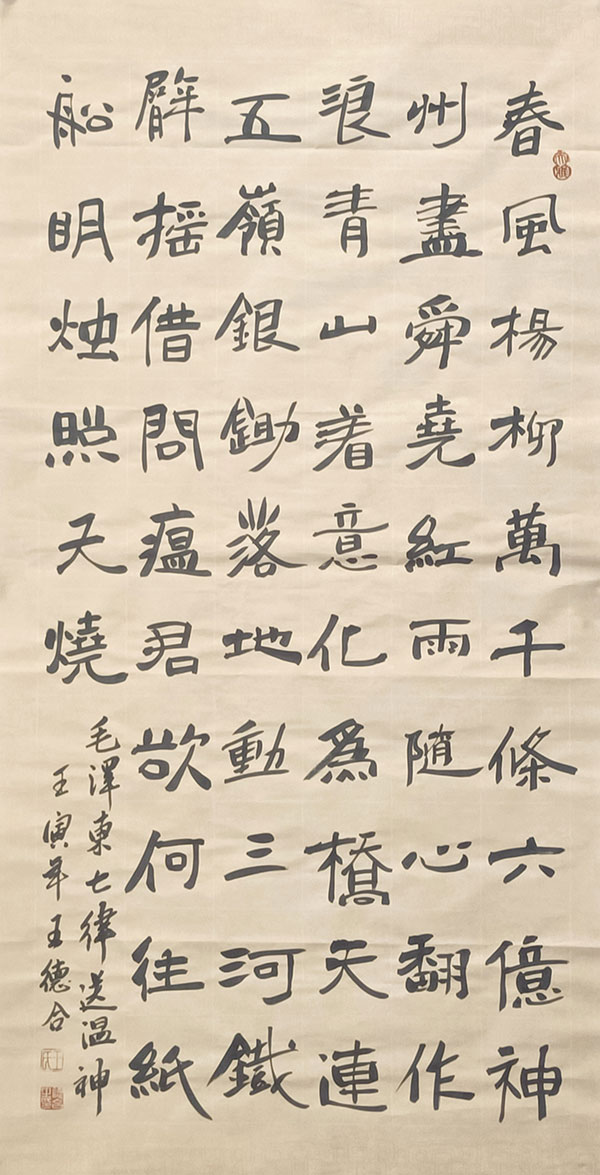 春風楊柳萬千條六億神
州盡舜堯紅雨随心翻作
浪青山着意化爲橋天連
五嶺銀鋤落地動三河鐵
臂摇借問瘟君欲何往紙
船明烛照天燒
毛澤東七律送温神
壬寅年王德合